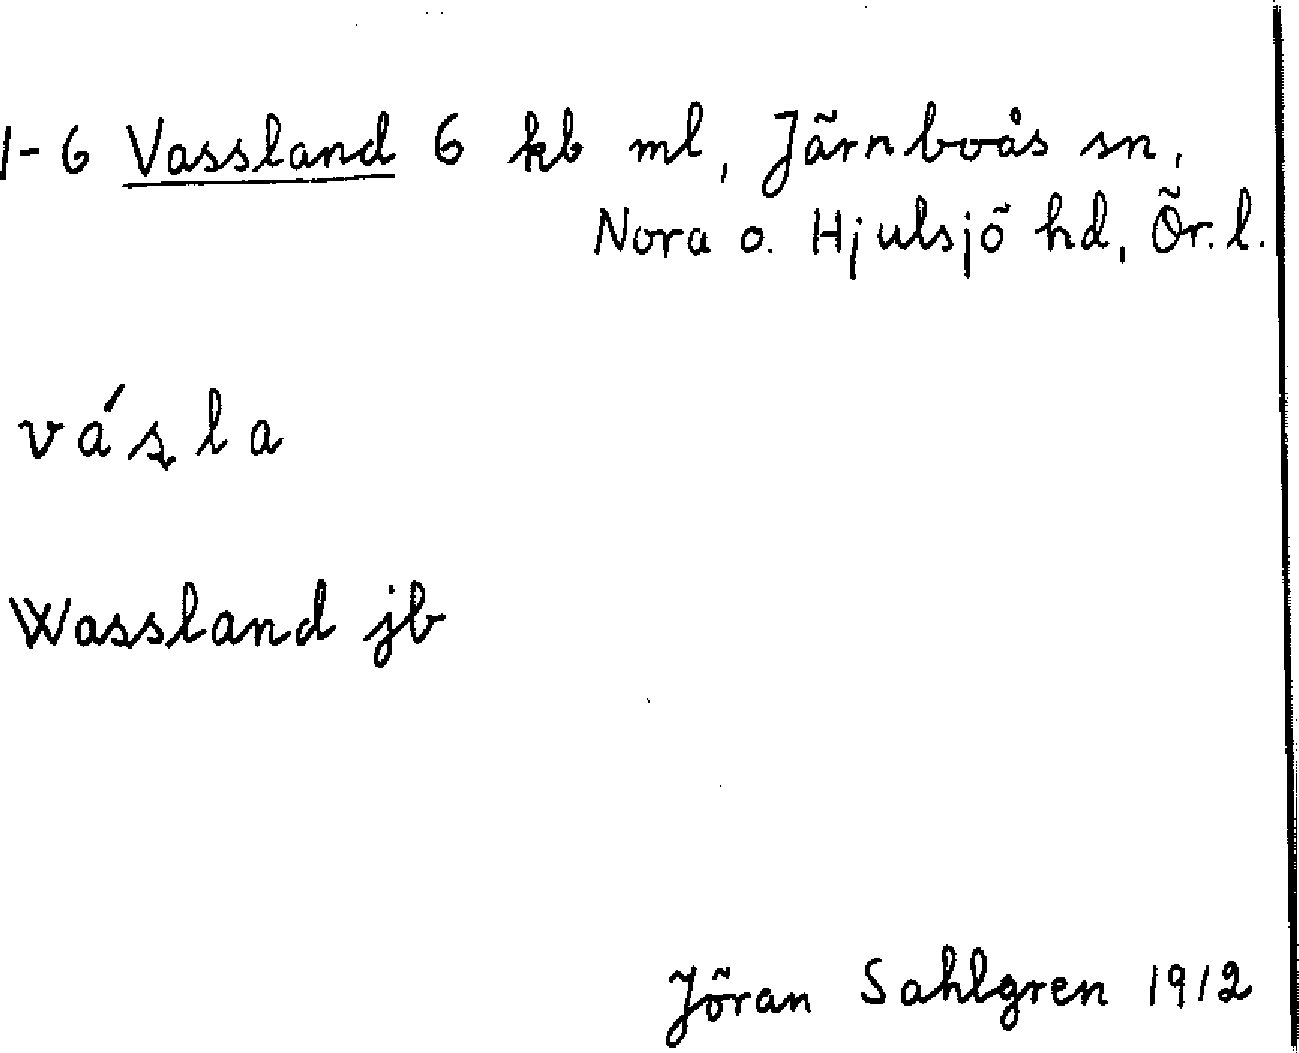 1-6 Vassland 6 kb ml, Järnboås sn,
Nora o. Hjulsjö hd, Ör. l.
vás̨la
Wassland jb
Jöran Sahlgren 1912